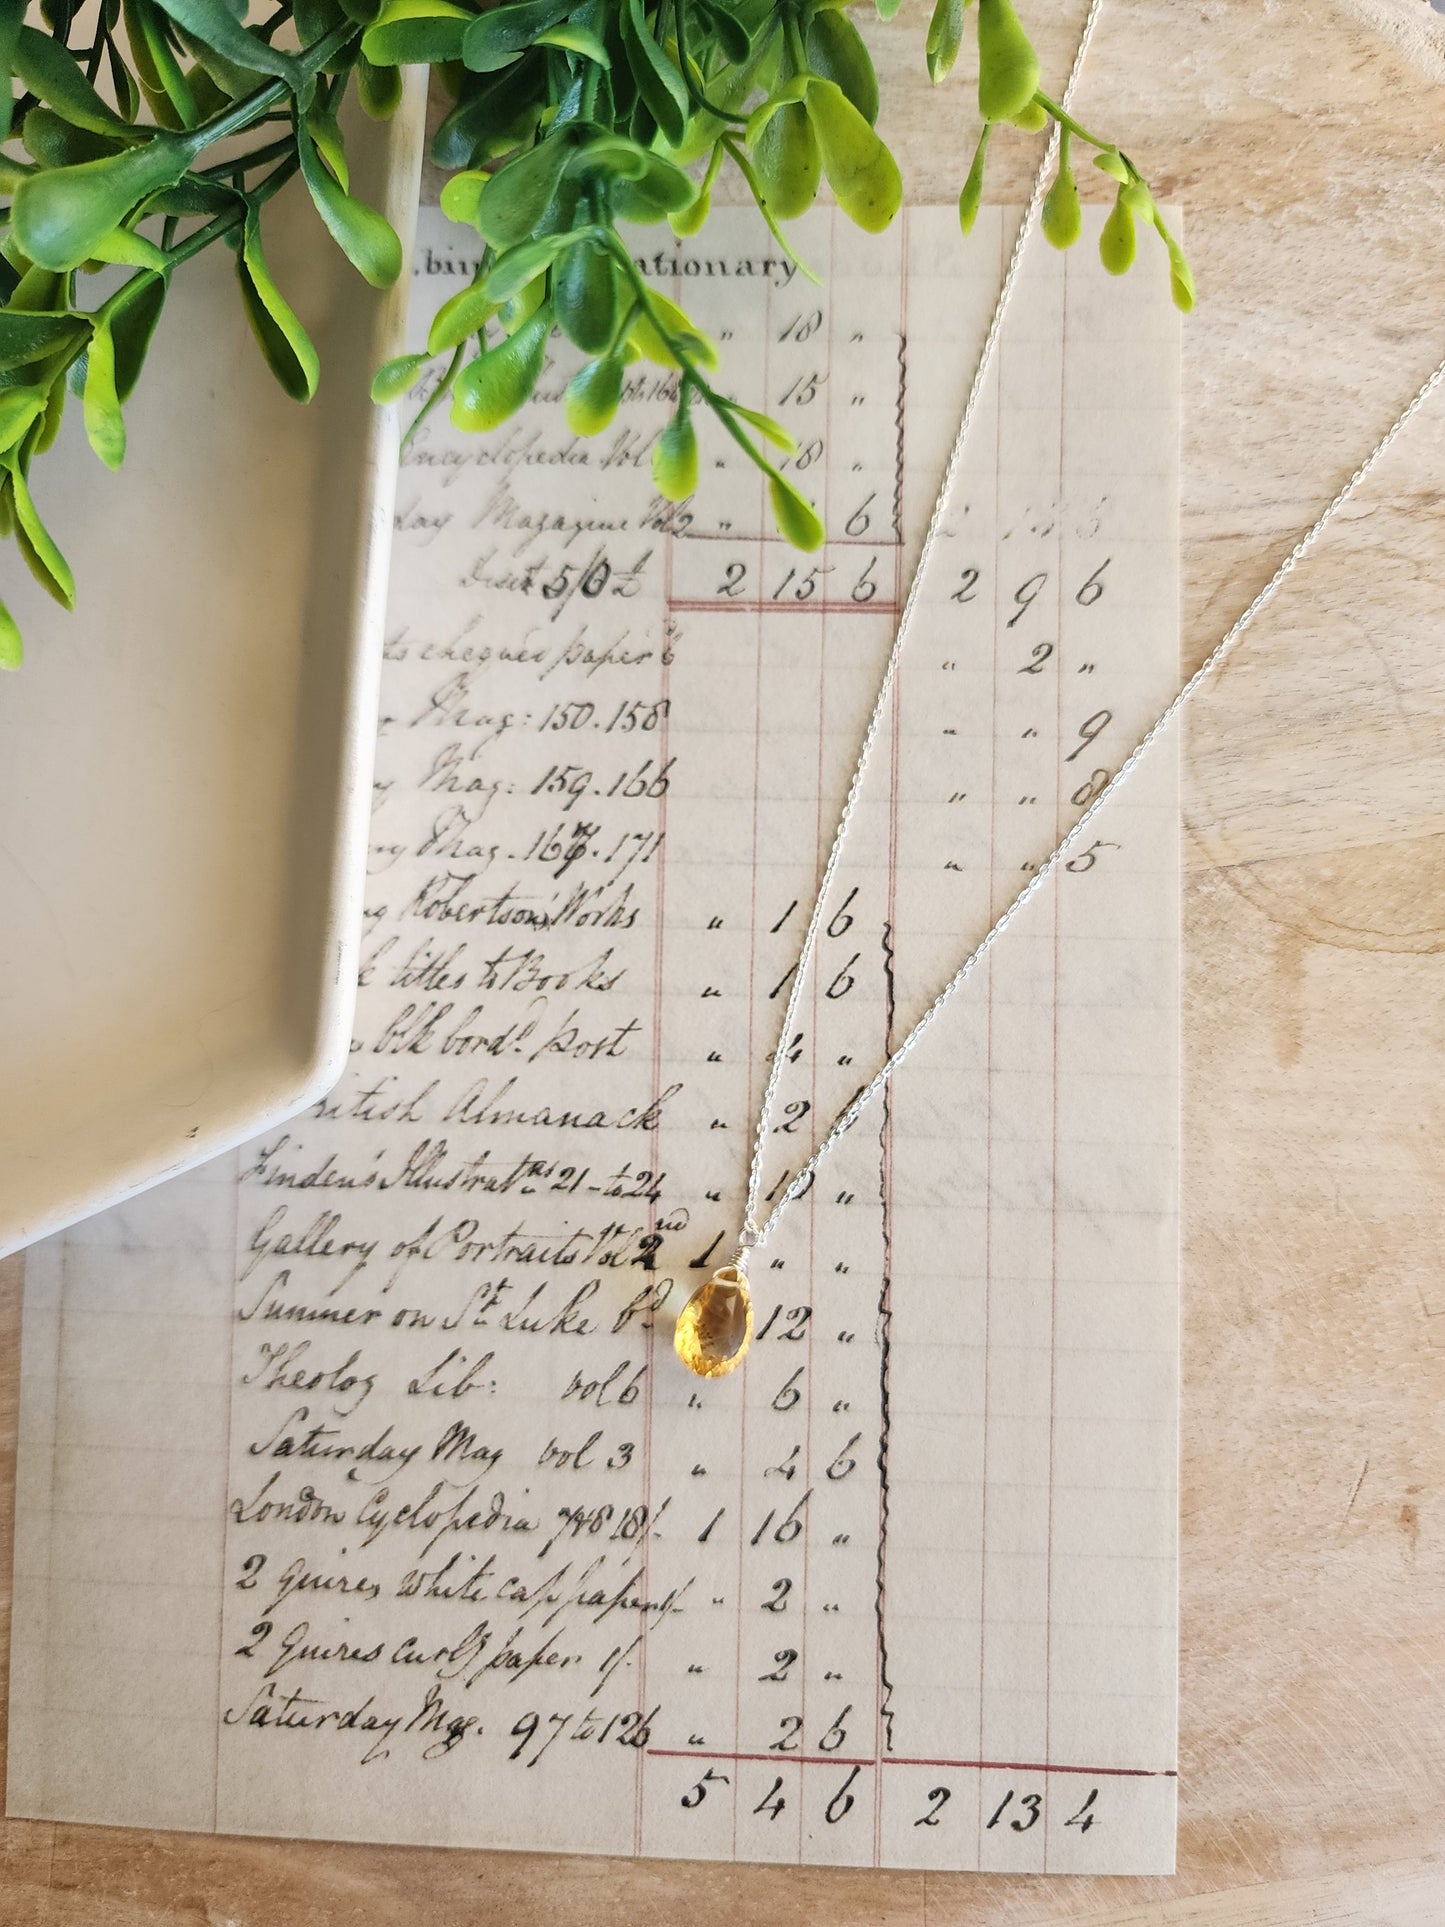 ationary
" 18 "
15 "
Encyclopedia Vol " 18 "
day Magazine Vol 2 " 6
Disct 5/0 2 15 6 2 9 6
chequed paper 6 " 2 "
Mag: 150.158 " " 9
Mag: 159.166 " " 8
Mag. 167.171 " " 5
Robertson's Works " 1 6
titles to Books " 1 6
blk bord.d post " 4 "
itish Almanack " 2 6
Finden's Illustrat.ns 21 - to 24 " 10 "
Gallery of Portraits Vol 2nd 1 " "
Summer on St Luke bd 12 "
Theolog Lib: vol 6 " 6 "
Saturday Mag vol 3 " 4 6
London Cyclopedia 7&8 18/- 1 16 "
2 Quires white cap paper 1/- " 2 "
2 Quires curlg paper 1/- " 2 "
Saturday Mag. 97 to 126 " 2 6
5 4 6 2 13 4